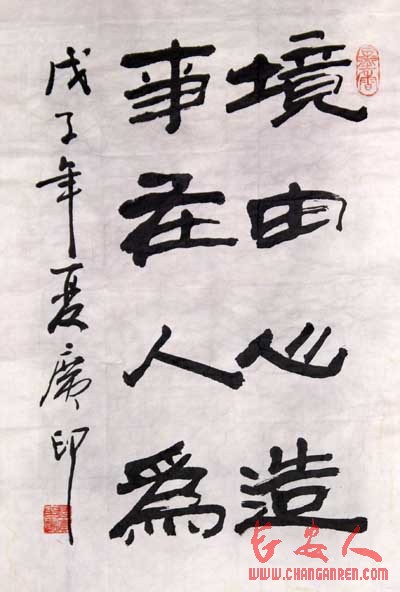 境由心造
事在人為
戊子年夏廣印
长安人
WWW.CHANGANREN.COM